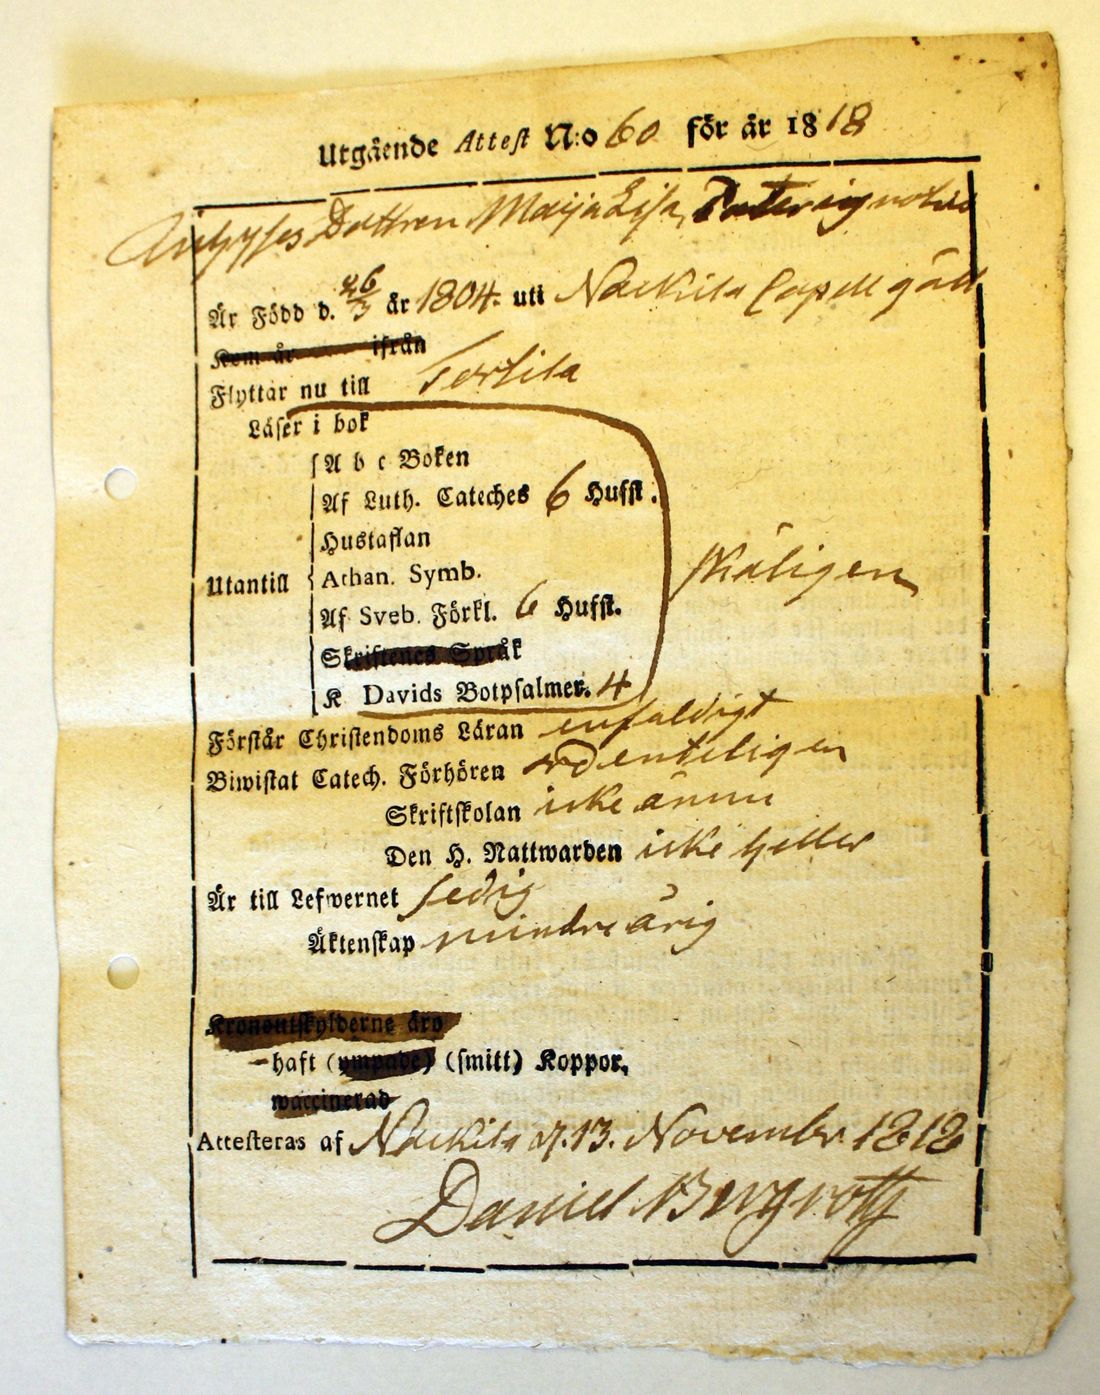 Utgående Attest N:o 60 för år 1818
Dottren Maija Lisa, Pater ignotus
Är Född d. 26/3 år 1804. uti Nackila Capell gäld
Kom år ifrån
Flyttar nu till
Läser i bok
A b c Boken
Af Luth. Cateches 6 Hufst.
Hustaflan
Utantill Athan. Symb. skäligen
Af Sveb. Förkl. 6 Hufst.
Skriftenes Språk
K Davids Botpsalmer. 4
Förstår Christendoms Läran enfaldigt
Biwistat Catech. Förhören ordenteligen
Skriftskolan icke ännu
Den H. Nattwarden icke heller
Är till Lefwernet sedig
Äktenskap minderårig
Kronoutskylderne äro
haft (ympade) (smitt) Koppor,
waccinerad
Attesteras af Nackila d. 13. November 1818
Daniel Bergroth